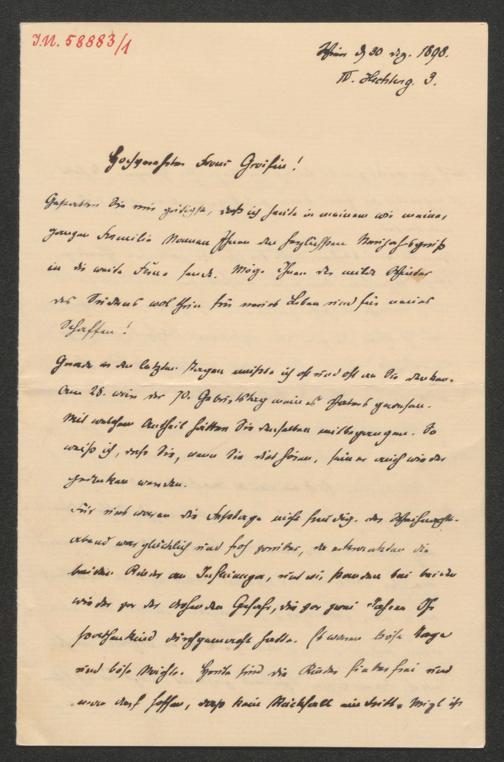 I.N. 58883/1
Wien d. 30 Dez. 1898.
IV. Hechteng. 3.
Hochverehrte Frau Gräfin!
Gestatten Sie mir gütigst, daß ich heute in meinem wie meiner
ganzen Familie Namen Ihnen den herzlichsten Neujahrsgruß
in die weite Ferne sende. Möge Ihnen der milde Winter
des Südens wol thun für Leben und für
Schaffen!
Gerade in den letzten Tagen mußte ich oft und oft an Sie denken.
Am 28. wäre der 70. Geburtstag meines Vaters gewesen.
Mit welchem Antheil hätten Sie denselben mitbegangen. So
weiß ich, daß Sie, wenn Sie dies hören, seiner auch wieder
gedenken werden.
Für uns waren die Festtage nicht freudig. Der Weihnachts-
abend war glücklich und froh vorüber, da erkrankten die
beiden Kinder an Influenza, und wir standen bei beiden
wieder vor der Gefahr, die vor zwei Jahren
durchgemacht hatte. Es waren böse Tage
und böse Nächte. Heute sind die Kinder fieberfrei und
man darf hoffen, daß kein Rückfall eintritt. Möge ich